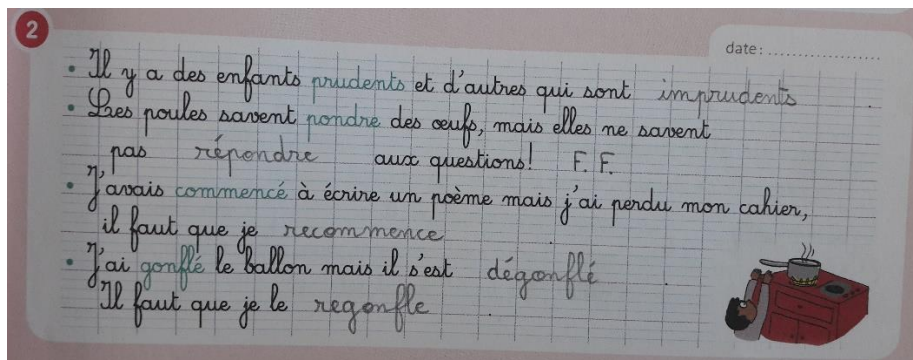 2
date: ....................
• Il y a des enfants prudents et d'autres qui sont imprudents
• Les poules savent pondre des œufs, mais elles ne savent
pas répondre aux questions! F. F.
• J'avais commencé à écrire un poème mais j'ai perdu mon cahier,
il faut que je recommence
• J'ai gonflé le ballon mais il s'est dégonflé
Il faut que je le regonfle